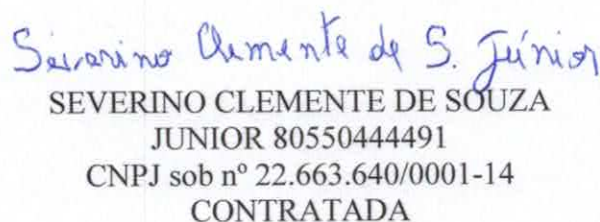 Severino Clemente de S. Júnior
SEVERINO CLEMENTE DE SOUZA
JUNIOR 80550444491
CNPJ sob nº 22.663.640/0001-14
CONTRATADA